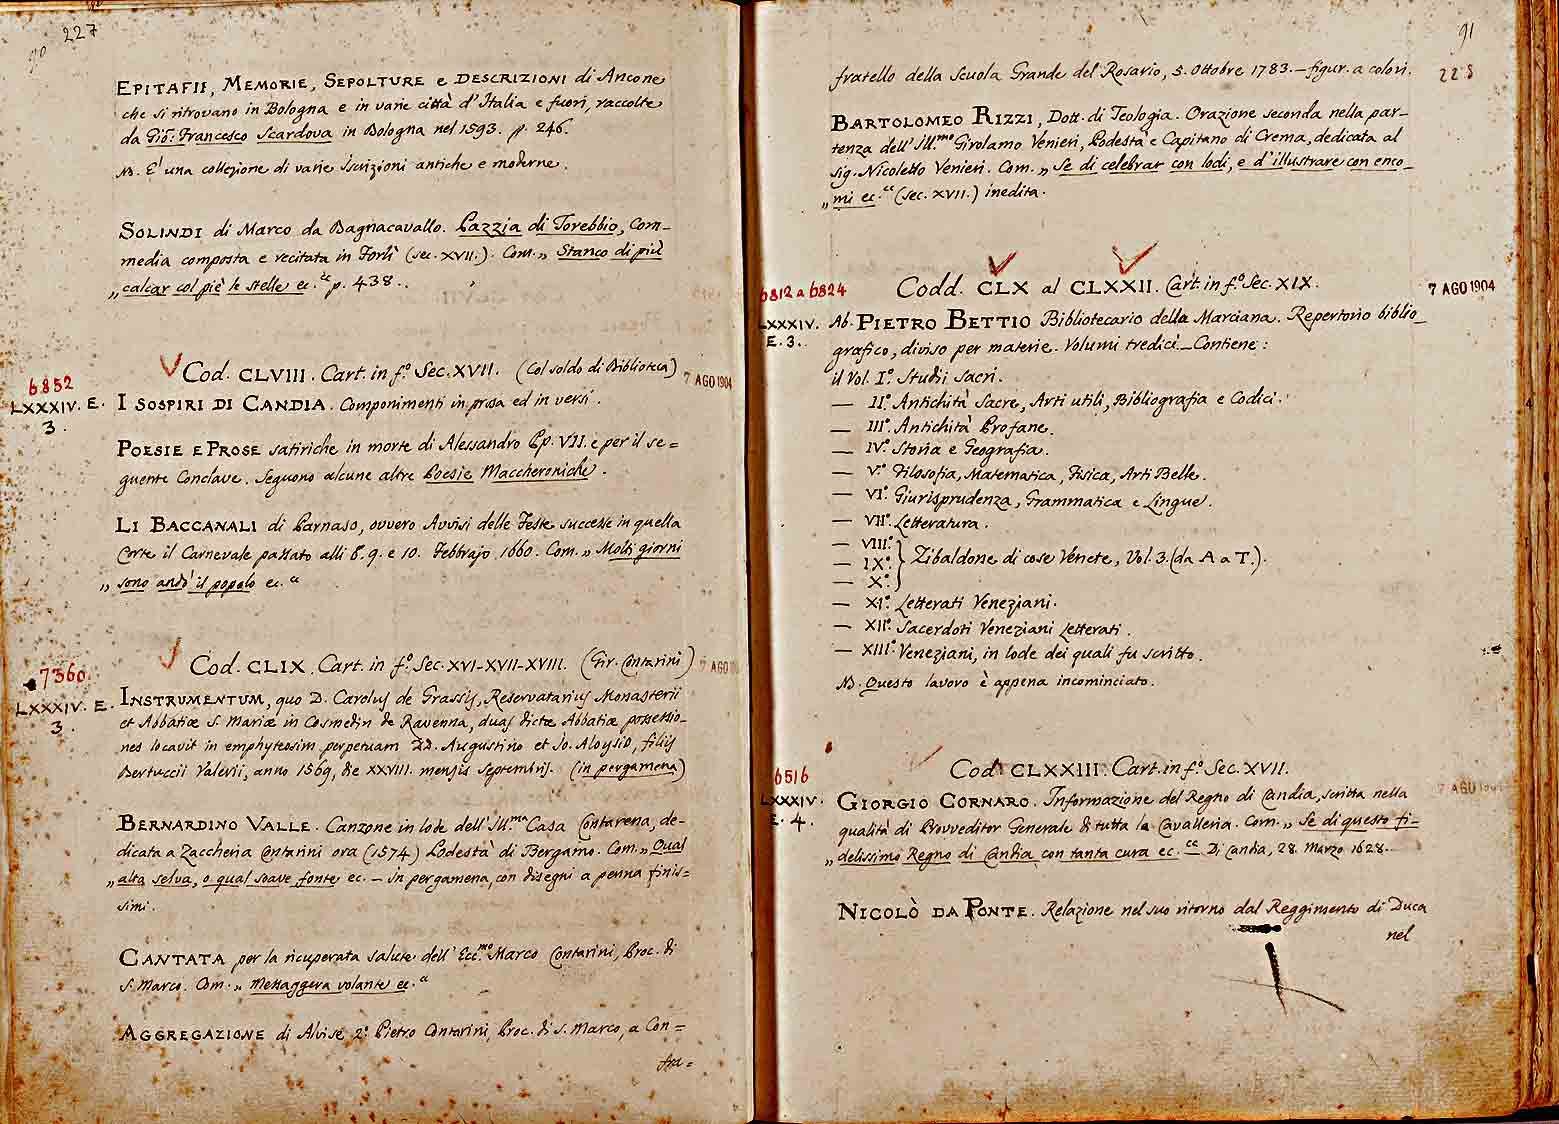 90
227
EPITAFII, MEMORIE, SEPOLTURE e DESCRIZIONI di Ancone
che si ritrovano in Bologna e in varie città d'Italia e fuori, raccolte
da Gio: Francesco Scardova in Bologna nel 1593. p. 246.
NB. E' una collezione di varie Iscrizioni antiche e moderne.
SOLINDI di Marco da Bagnacavallo. Pazzia di Torebbio, Com-
media composta e recitata in Forlì (sec. XVII.). Com. „ Stanco di più
„ calcar col piè le stelle ec. ec p. 438.
Cod. CLVIII. Cart. in f.º Sec. XVII. (Col soldo di Biblioteca)
7 AGO 1904
6852
LXXXIV. E.
3.
I SOSPIRI DI CANDIA. Componimenti in prosa ed in versi.
POESIE E PROSE satiriche in morte di Alessandro Pp. VII. e per il se=
guente Conclave. Seguono alcune altre Poesie Maccheroniche.
LI BACCANALI di Parnaso, ovvero Avvisi delle Feste successe in quella
Corte il Carnevale passato alli 8. 9. e 10. Febbrajo 1660. Com. „ Molti giorni
„ sono andò il popolo ec. "
Cod. CLIX. Cart. in f.º Sec. XVI-XVII-XVIII. (Gir. Contarini)
7 AGO
7360
LXXXIV. E.
3.
INSTRUMENTUM, quo D. Carolus de Grassis, Reservatarius Monasterii
et Abbatiæ S. Mariæ in Cosmedin de Ravenna, duas dictæ Abbatiæ possessio-
nes locavit in emphyteosim perpetuam DD. Augustino et Jo. Aloysio, filiis
Bertuccii Valerii, anno 1569, die XXVIII. mensis Septembris. (in pergamena)
BERNARDINO VALLE. Canzone in lode dell' Ill.ma Casa Contarena, de-
dicata a Zaccheria Contarini ora (1574) Podestà di Bergamo. Com. „ Qual
„ alta selva, o qual soave fonte ec. – In pergamena, con disegni a penna finis=
simi.
CANTATA per la ricuperata salute dell' Ecc.mo Marco Contarini, Proc. di
S. Marco. Com. „ Messaggera volante ec. "
AGGREGAZIONE di Alvise 2.º Pietro Contarini, Proc. di S. Marco, a Con=
fra=
91
228
fratello della Scuola Grande del Rosario, 5. Ottobre 1783. – figur. a colori.
BARTOLOMEO RIZZI, Dott. di Teologia. Orazione seconda nella par-
tenza dell' Ill.mo Girolamo Venieri, Podestà e Capitano di Crema, dedicata al
sig. Nicoletto Venieri. Com. „ Se di celebrar con lodi, e d'illustrare con enco-
„ mi ec. " (sec. XVII.) inedita.
6812 a 6824
LXXXIV.
E. 3.
Codd. CLX al CLXXII. Cart. in f.º Sec. XIX.
7 AGO 1904
Ab. PIETRO BETTIO Bibliotecario della Marciana. Repertorio biblio-
grafico, diviso per materie. Volumi tredici. – Contiene:
il Vol. Iº. Studii Sacri.
— IIº. Antichità Sacre, Arti utili, Bibliografia e Codici.
— IIIº. Antichità Profane.
— IVº. Storia e Geografia.
— Vº. Filosofia, Matematica, Fisica, Arti Belle.
— VIº. Giurisprudenza, Grammatica e Lingue.
— VIIº. Letteratura.
— VIIIº.
— IXº. } Zibaldone di cose Venete, Vol. 3. (da A a T.).
— Xº.
— XIº. Letterati Veneziani.
— XIIº. Sacerdoti Veneziani Letterati.
— XIIIº. Veneziani, in lode dei quali fu scritto.
NB. Questo lavoro è appena incominciato.
6516
LXXXIV.
E. 4.
Cod. CLXXIII. Cart. in f.º Sec. XVII.
7 AGO 1904
GIORGIO CORNARO. Informazione del Regno di Candia, scritta nella
qualità di Provveditor Generale di tutta la Cavalleria. Com. „ Se di questo fi-
„ delissimo Regno di Candia con tanta cura ec. ce Di Candia, 28. Marzo 1628.
NICOLÒ DA PONTE. Relazione nel suo ritorno dal Reggimento di Duca
nel